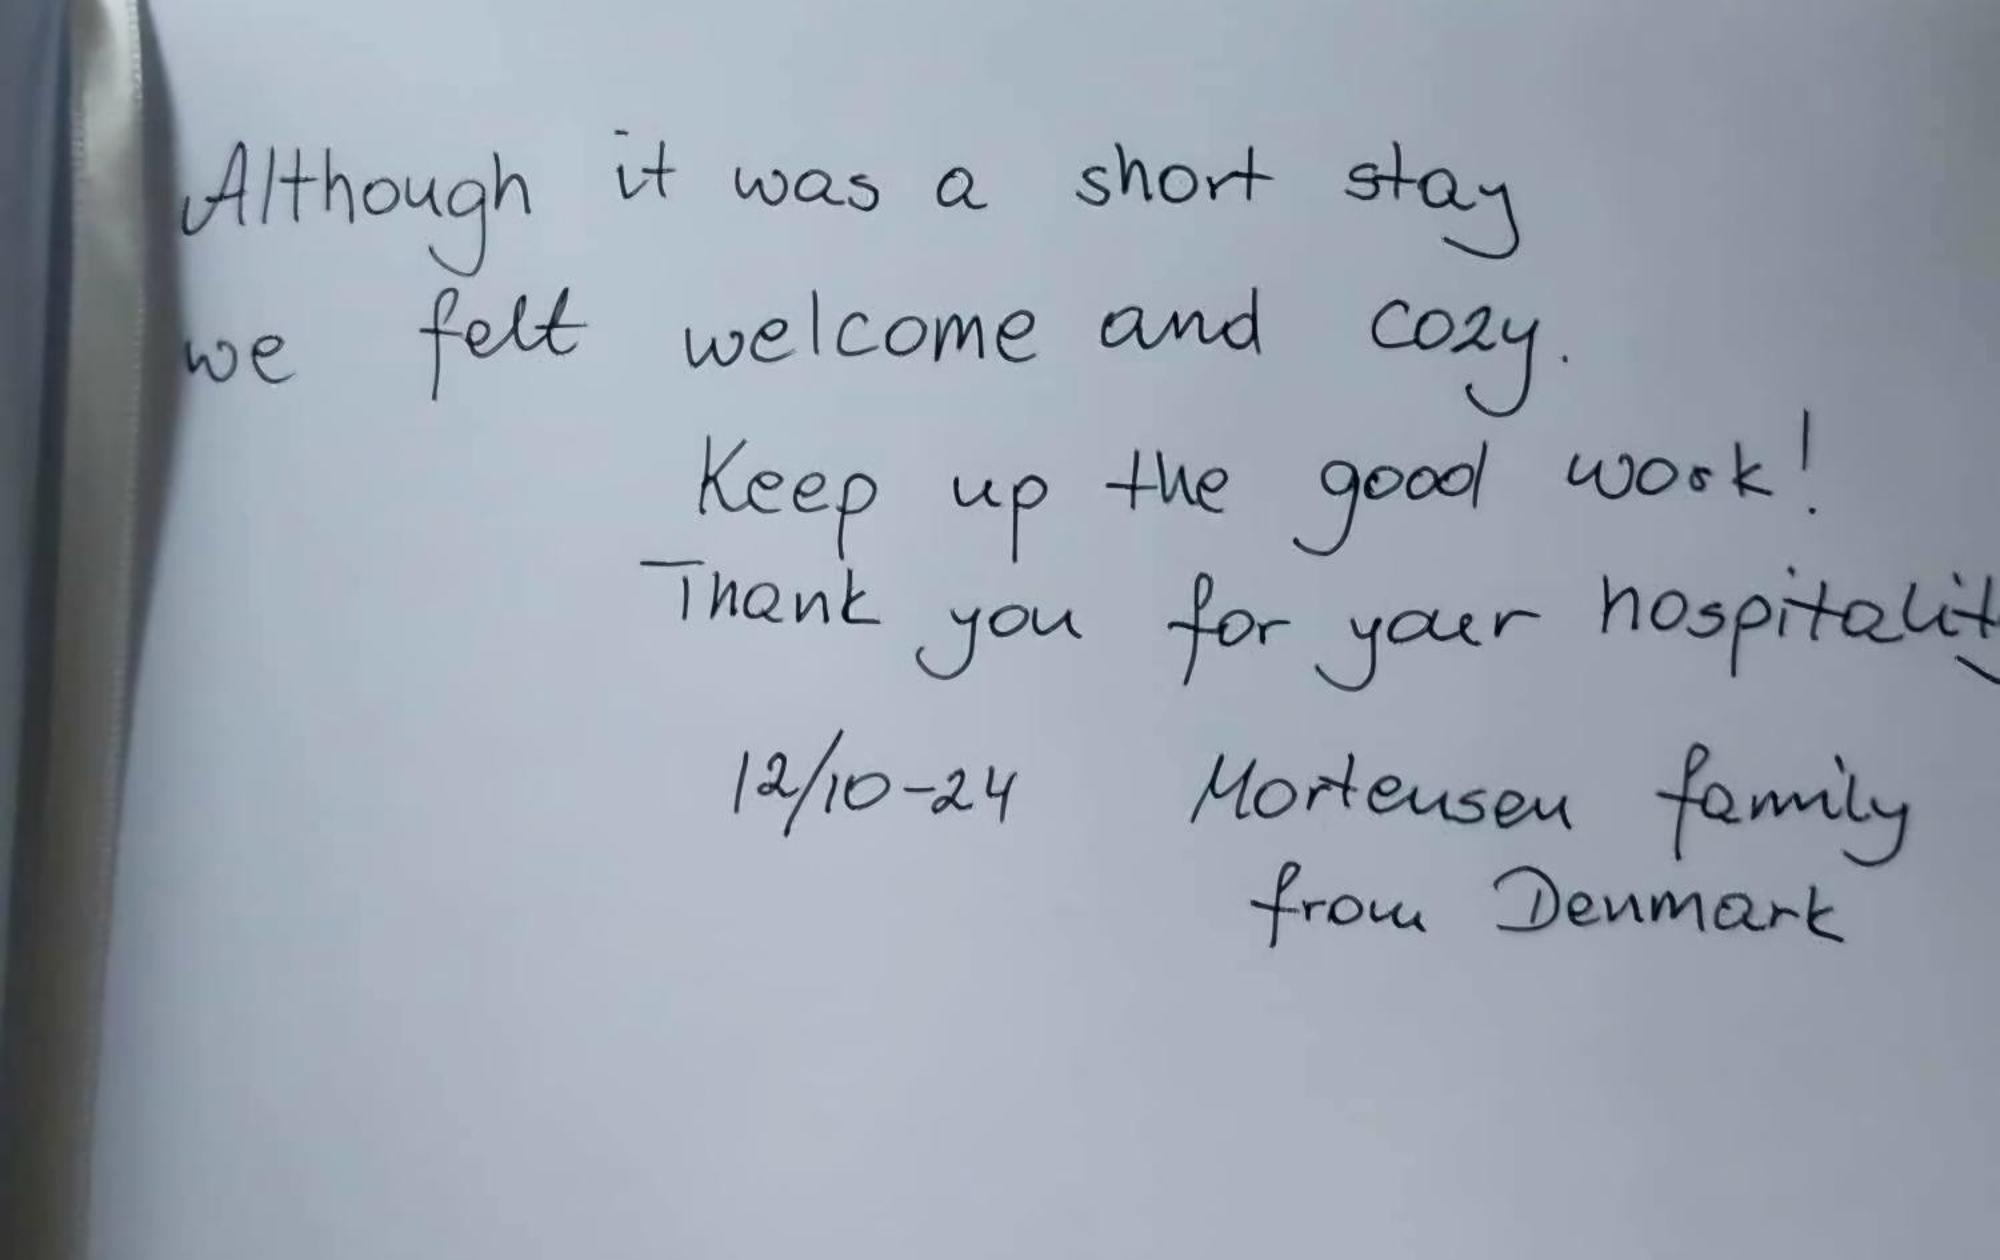 Although it was a short stay
we felt welcome and cozy.
Keep up the good work!
Thank you for your hospitality
12/10-24 Mortensen family
from Denmark